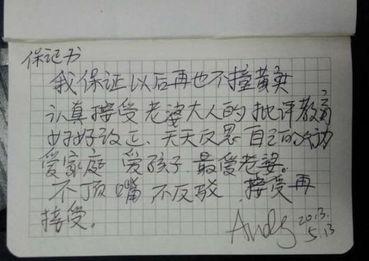 保证书
我保证以后再也不撞黄卖
认真接受老婆大人的批评教育
好好改正、天天反思自己的
爱家庭 爱孩子 最爱老婆。
不顶嘴 不反驳 接受再
接受。
Andy 2013.
5.13